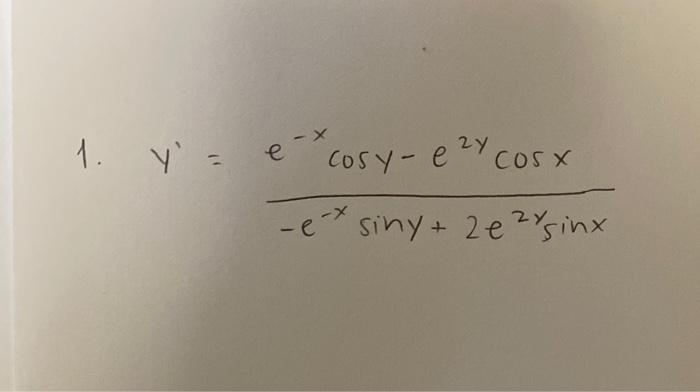 1. y' = e^{-x} cos y - e^{2y} cos x
-e^{-x} sin y + 2e^{2y} sin x